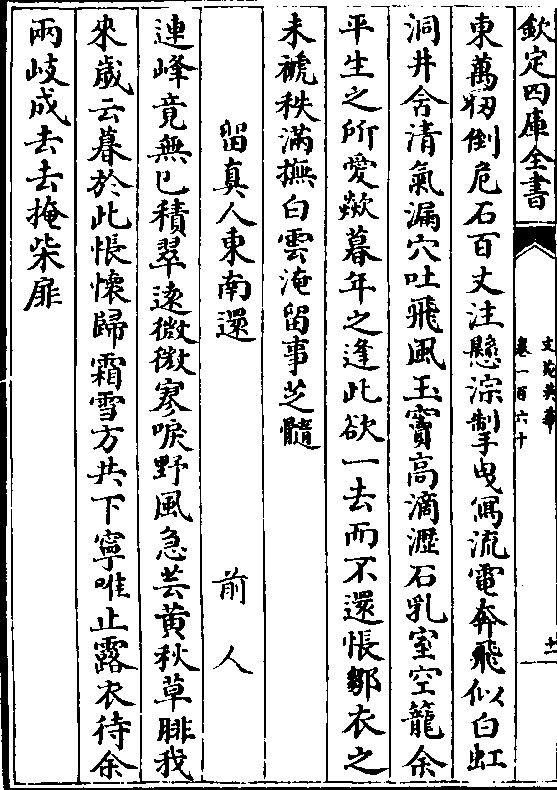 欽定四庫全書
文苑英華
卷一百六十
十一
東萬仭倒危石百丈注懸淙掣曳寫流電奔飛似白虹
洞井含清氣漏穴吐飛風玉竇高滴瀝石乳室空籠余
平生之所愛歘暮年之逢此欲一去而不還悵鄒衣之
未褫秩滿撫白雲淹留事芝髓
留真人東南還　前人
連峰竟無已積翠遠微微寥唳野風急芸黄秋草腓我
來歲云暮於此悵懷歸霜雪方共下寧唯止露衣待余
兩岐成去去掩柴扉